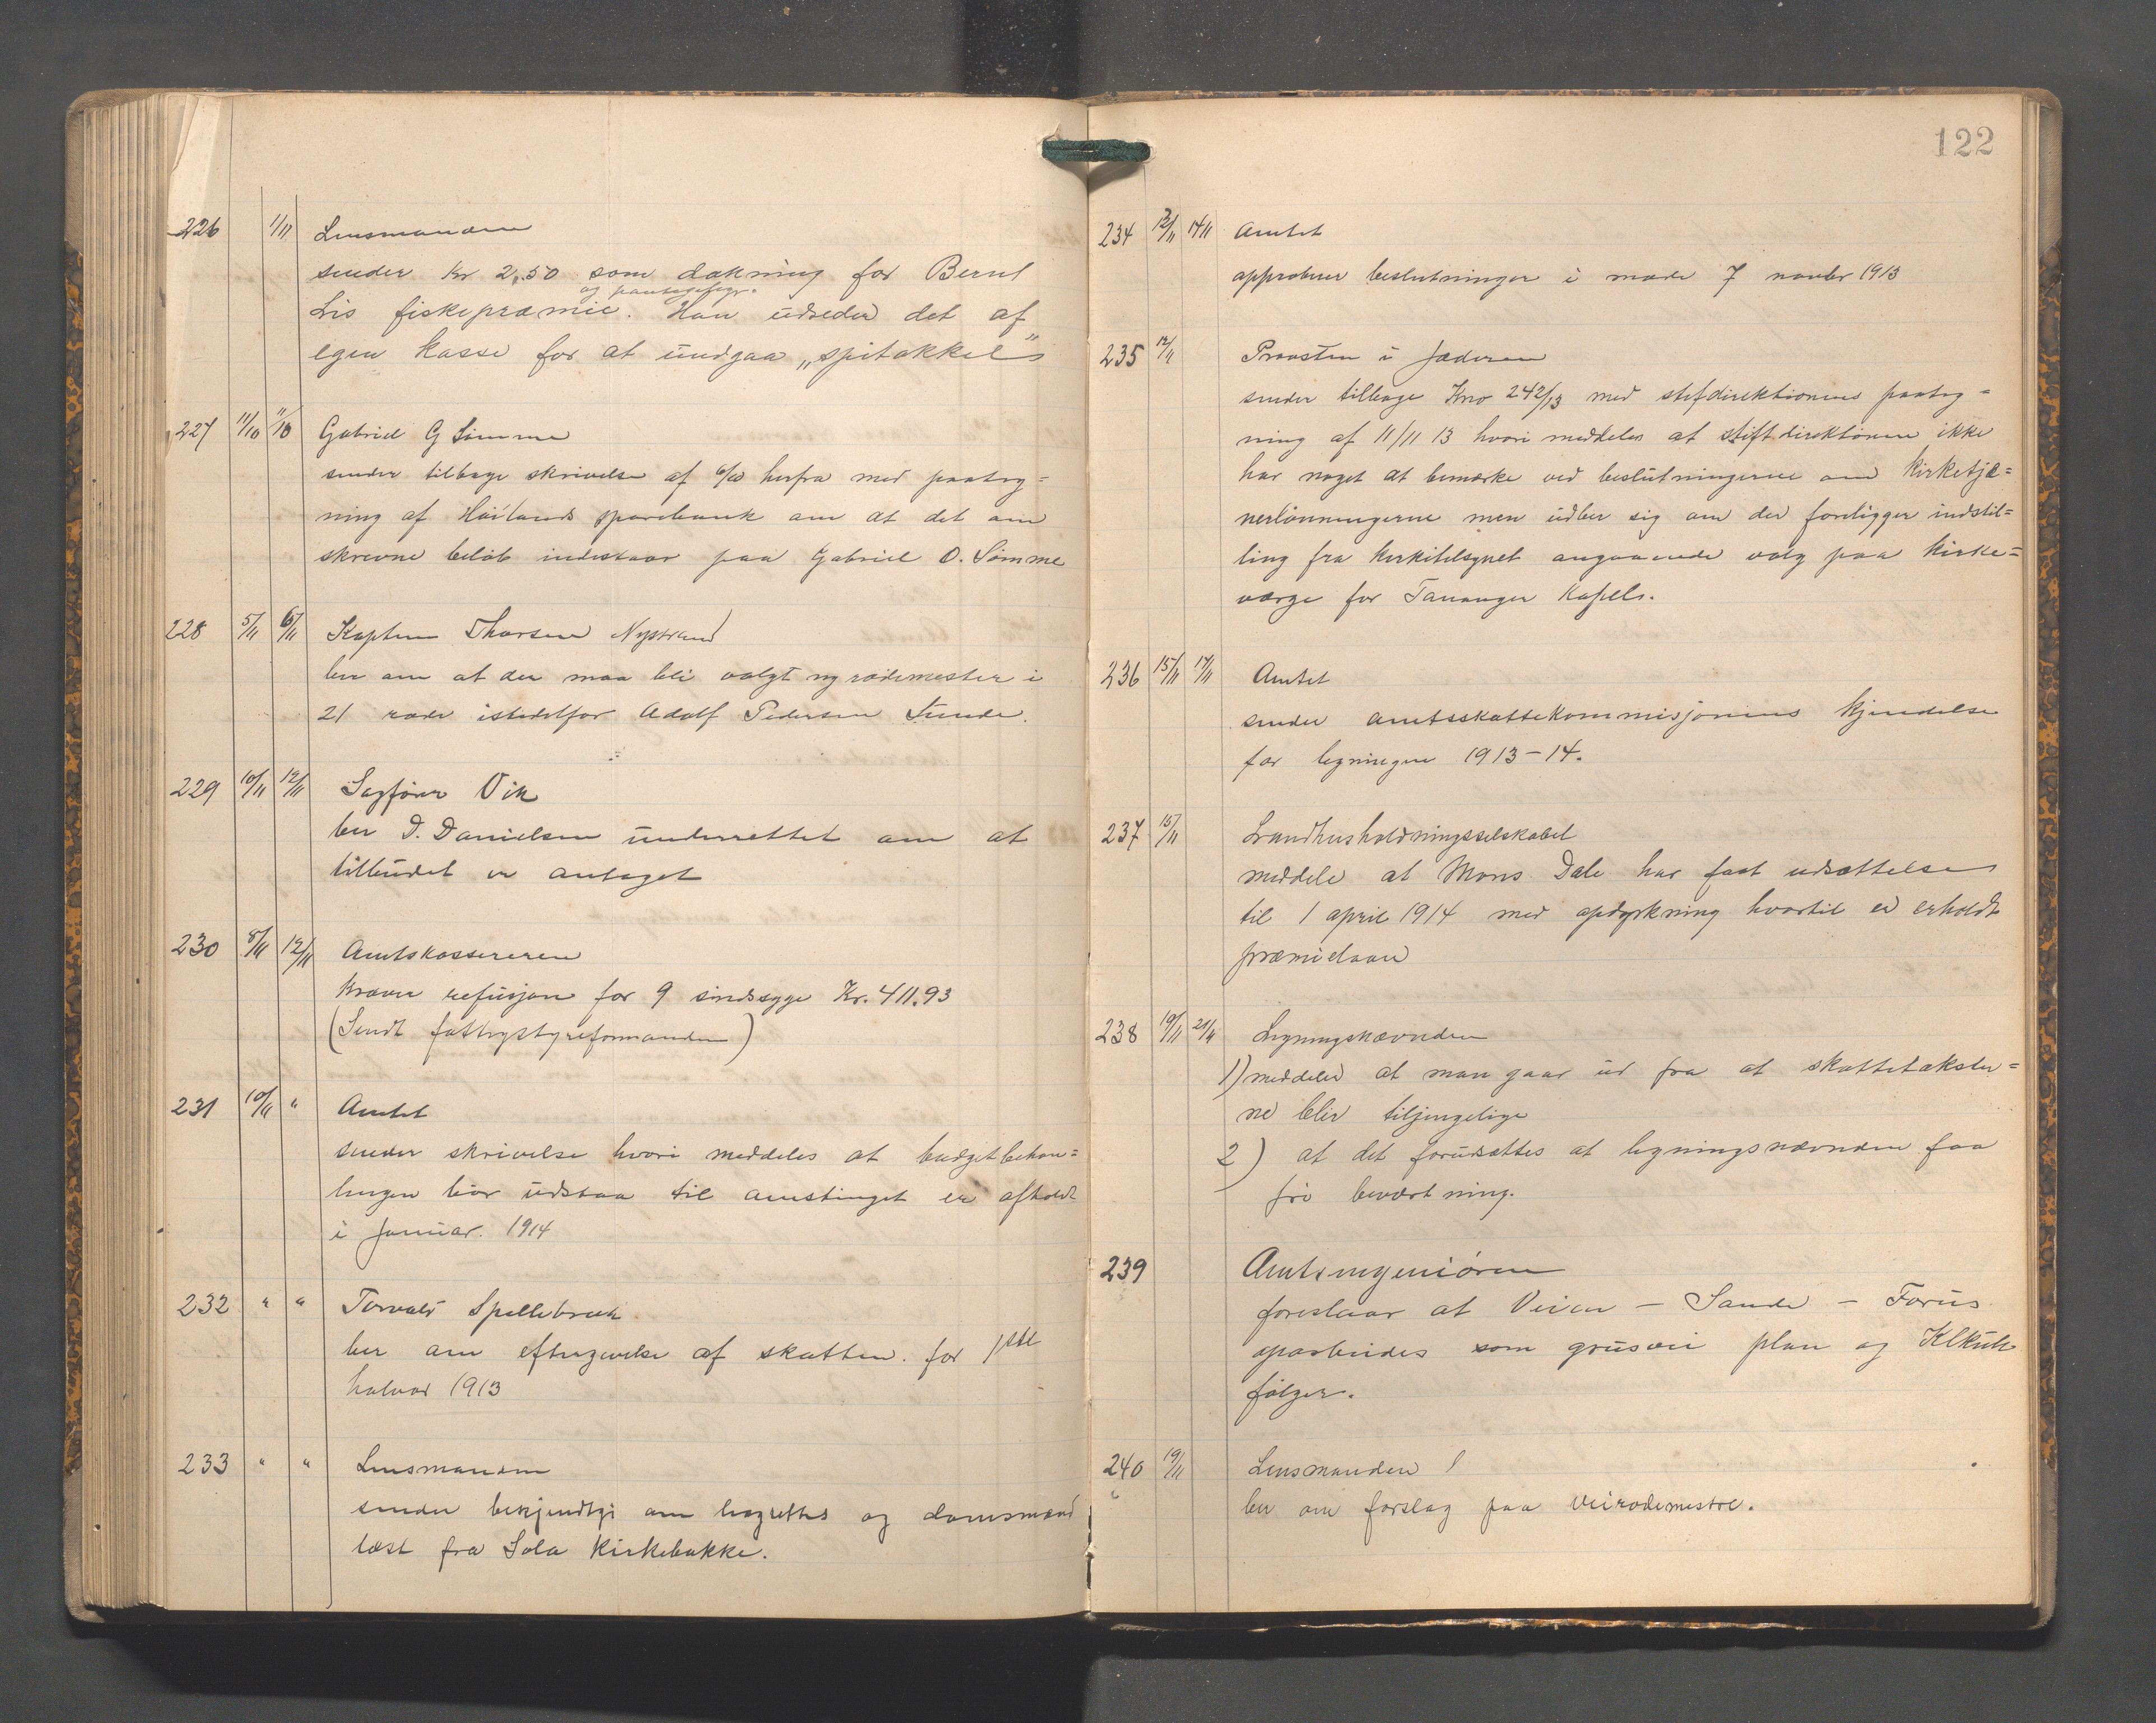 226 1/11 Lensmanden
sender Kr 2,50 som dækning for Bernt
og pantegebyr.
Lis fiskepræmie. Han udreder det af
egen kasse for at undgaa „spitakkel"
227 11/10 11/10 Gabriel G Sömme
sender tilbage skrivelse af 6/10 herfra med paateg=
ning af Høilands sparebank om at det om
skrevne beløb indestaar paa Gabriel O. Sömme
228 5/11 6/11 Kaptein Thorsen Nystrand
ber om at der maa bli valgt ny rodemester i
21 rode istedetfor Adolf Pedersen Sunde.
229 10/11 12/11 Sagfører Vik
ber D. Danielsen underrettet om at
tilbudet er antaget
230 8/11 12/11 Amtskassereren
kræver refusjon for 9 sindssyge Kr. 411.93
(Sendt fattigstyreformanden)
231 10/11 " Amtet
sender skrivelse hvori meddeles at budgetbehan=
lingen bör udstaa til amtstinget er afholdt
i Januar. 1914
232 " " Torvald Spellebræk
ber om eftergivelse af skatten for 1ste
halvaar 1913
233 " " Lensmanden
sender bekjendtgj om lagrettes og domsmænd
læst fra Sola Kirkebakke.
122
234 12/11 14/11 Amtet
approberer beslutninger i møde 7 novbr 1913
235 12/11 Provsten i Jæderen
sender tilbage Kno 242/13 med stifdirektionens paateg=
ning af 11/11 13 hvori meddeles at stiftdirektionen ikke
har noget at bemærke ved beslutningerne om Kirketjæ=
nerlønningerne men udber sig om der foreligger indstil=
ling fra kirketilsynet angaaende valg paa kirke=
værge for Tananger Kapel.
236 15/11 17/11 Amtet
sender amtsskattekommisjonens kjendelse
for ligningen 1913-14.
237 15/11 Landhusholdningsselskabet
meddele at Mons Dale har faat udsættelse
til 1 april 1914 med opdyrkning hvortil er erholdt
præmielaan
238 19/11 21/11 Ligningsnævnden
1) meddeler at man gaar ud fra at skattetakster=
ne blir tiljengelige
2) at det forudsættes at ligningsnævnden faa
fri beværtning.
239 Amtsingeniøren
foreslaar at Veien - Sande - Forus
oparbeides som grusvei plan og
følger.
240 19/11 Lensmanden
ber om forslag paa veirodemestre.